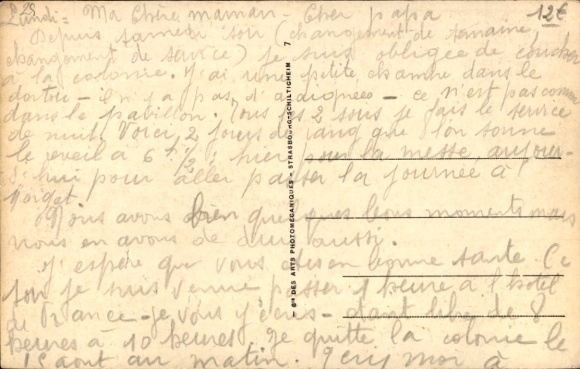 29
Lundi - Ma chère maman - Cher papa
12€
Depuis samedi soir (changement de semaine,
changement de service) je suis obligée de coucher
à la colonie. J'ai une petite chambre dans le
dortoir - Il n'y a pas d'araignées - ce n'est pas comme
dans le pavillon. Tous les 2 jours je fais le service
de nuit. Voici 2 jours de rang que l'on sonne
le réveil à 6 h 1/2, hier pour la messe, aujour-
d'hui pour aller passer la journée à
Nous avons bien quelques bons moments mais
nous en avons de durs aussi.
J'espère que vous êtes en bonne santé. Ce
soir je suis venue passer 1 heure à l'hôtel
de France - je vous y écris - étant libre de 8
heures à 10 heures. Je quitte la colonie le
15 août au matin. Ecris moi à
- Cie DES ARTS PHOTOMECANIQUES - STRASBOURG-SCHILTIGHEIM 7